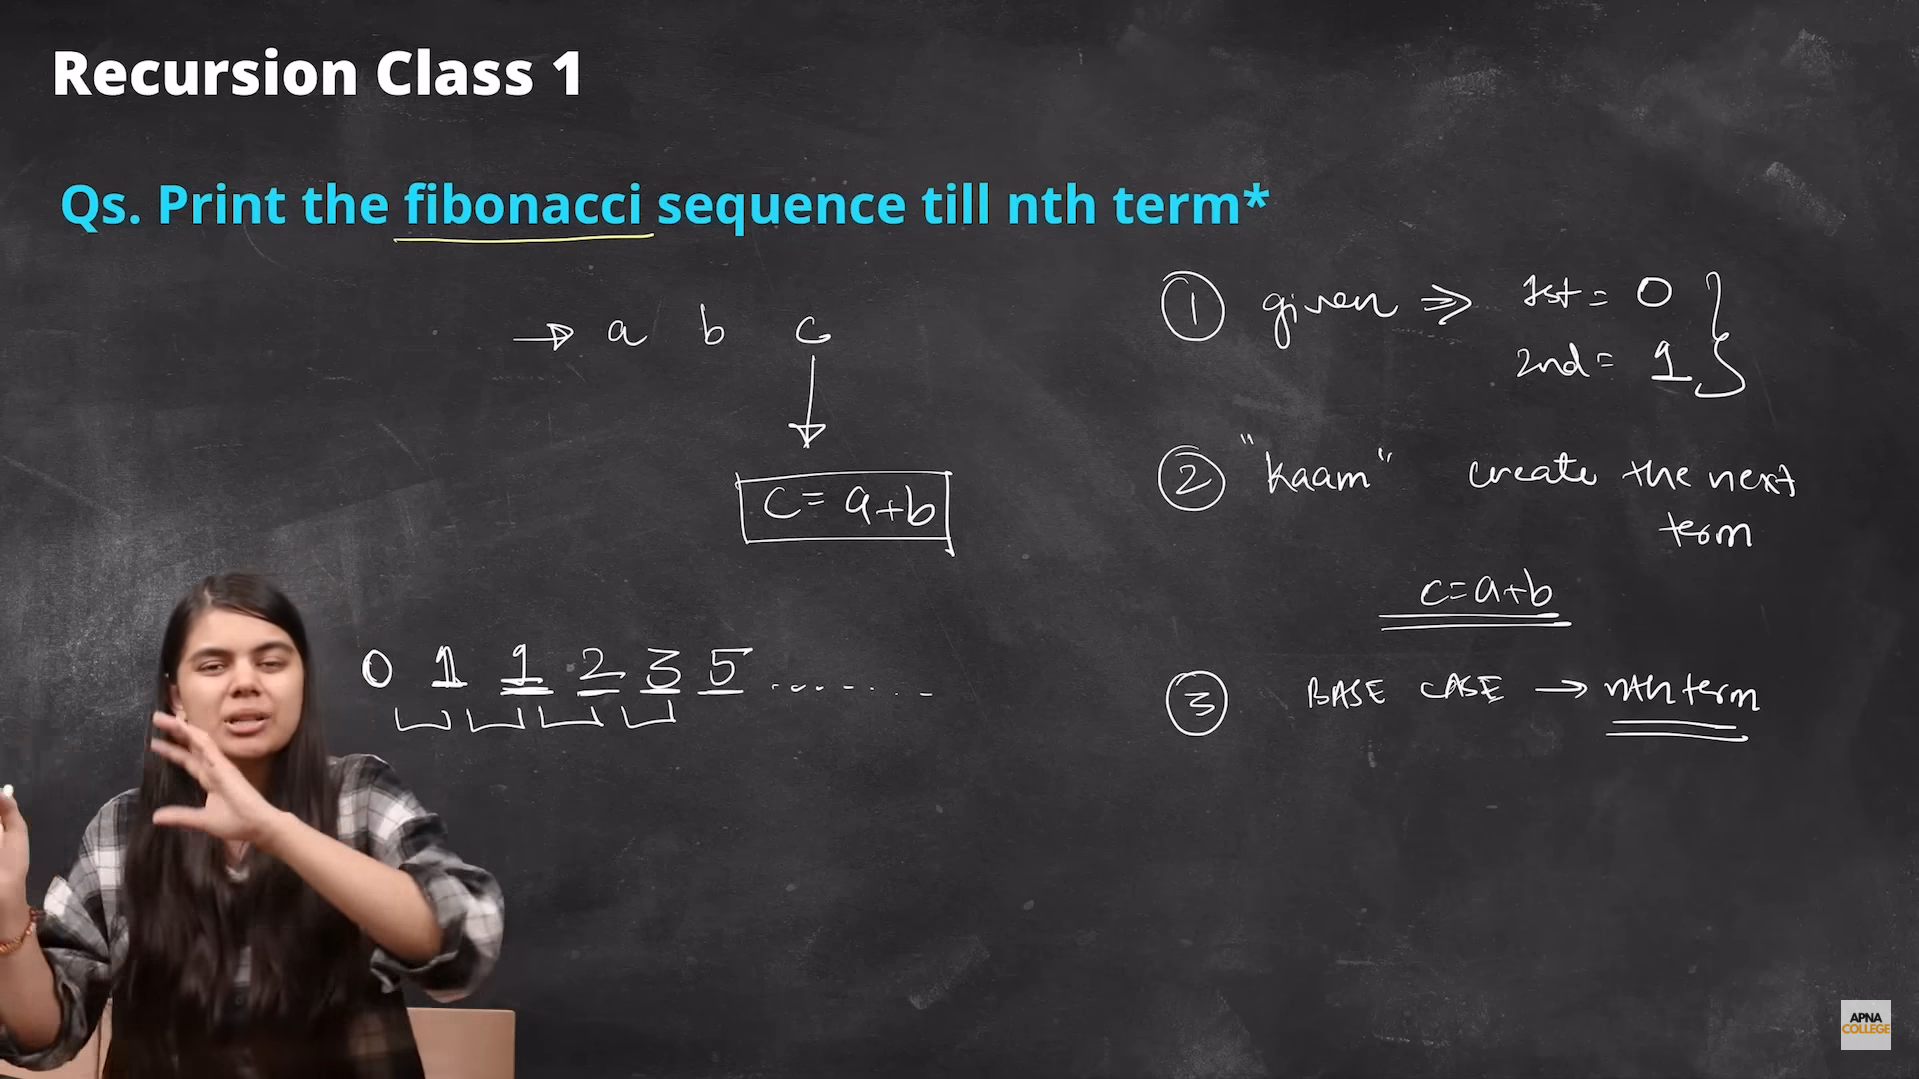 Recursion Class 1
Qs. Print the fibonacci sequence till nth term*
→ a b c
c = a+b
0 1 1 2 3 5 .......
① given ⇒ 1st = 0
2nd = 1
② "kaam" create the next
term
c=a+b
③ BASE CASE → nth term
APNA
COLLEGE